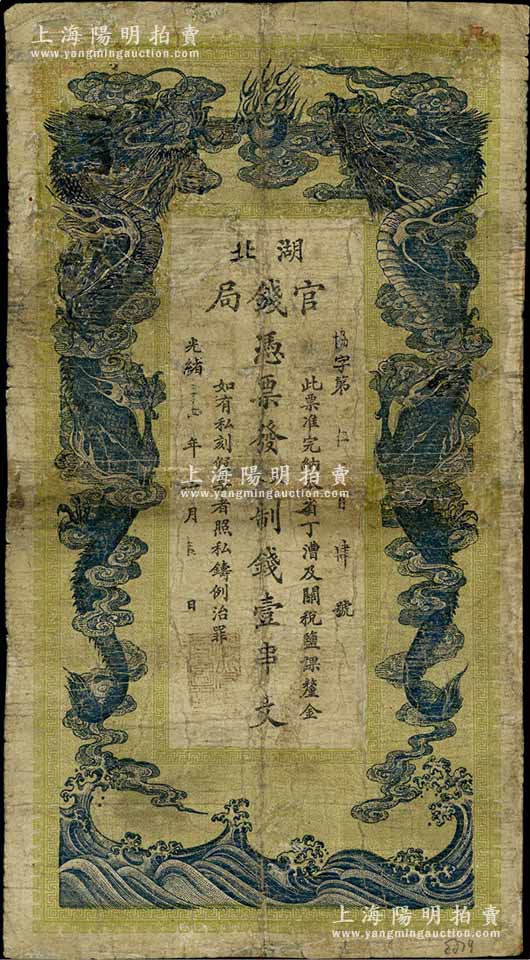 上海陽明拍賣
www.yangmingauction.com
湖北
官錢局
協字第 百肆號
此票准完納 省丁漕及關稅鹽課釐金
憑票發 制錢壹串文
如有私刻假 者照私鑄例治罪
光緒 年 月 日
上海陽明拍賣
www.yangmingauction.com
上海陽明拍賣
www.yangmingauction.com